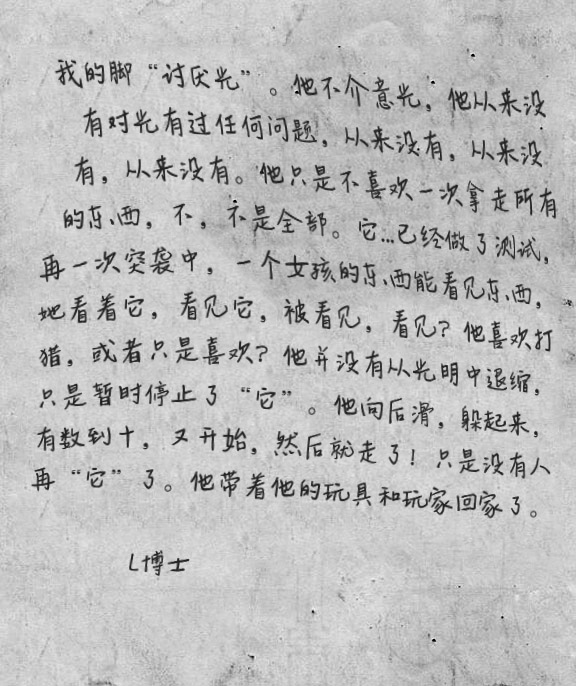 我的脚“讨厌光”。他不介意光，他从来没
有对光有过任何问题，从来没有，从来没
有，从来没有。他只是不喜欢一次拿走所有
的东西，不，不是全部。它...已经做了测试，
再一次突袭中，一个女孩的东西能看见东西，
她看着它，看见它，被看见，看见？他喜欢打
猎，或者只是喜欢？他并没有从光明中退缩，
只是暂时停止了“它”。他向后滑，躲起来，
有数到十，又开始，然后就走了！只是没有人
再“它”了。他带着他的玩具和玩家回家了。
L博士